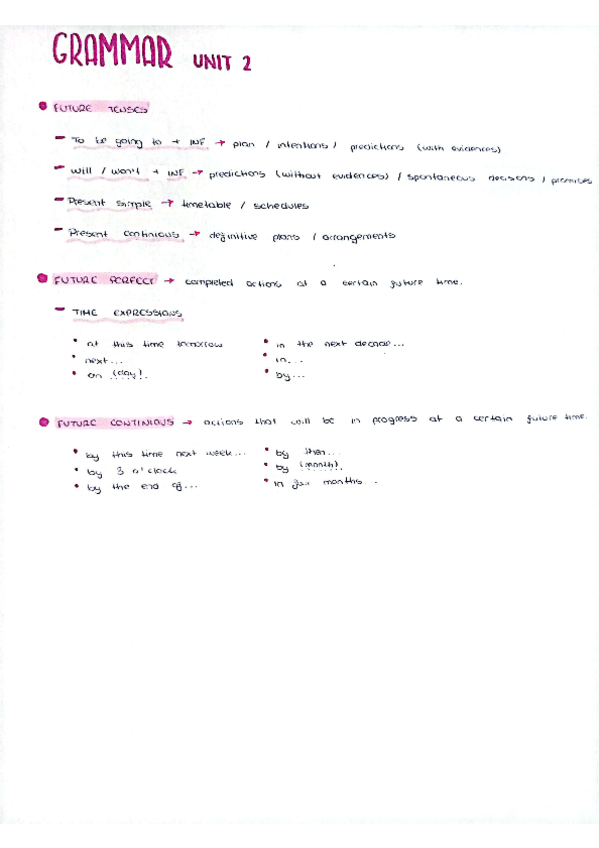 GRAMMAR UNIT 2
FUTURE TENSES
- To be going to + INF → plan / intentions / predictions (with evidences)
- Will / won't + INF → predictions (without evidences) / spontaneous decisions / promises
- Present simple → timetable / schedules
- Present continious → definitive plans / arrangements
FUTURE PERFECT → completed actions at a certain future time.
- TIME EXPRESSIONS
• at this time tomorrow
• next...
• on (day).
• in the next decade...
• in...
• by...
FUTURE CONTINIOUS → actions that will be in progress at a certain future time.
• by this time next week...
• by 3 o'clock
• by the end of...
• by then...
• by (month)
• in months...